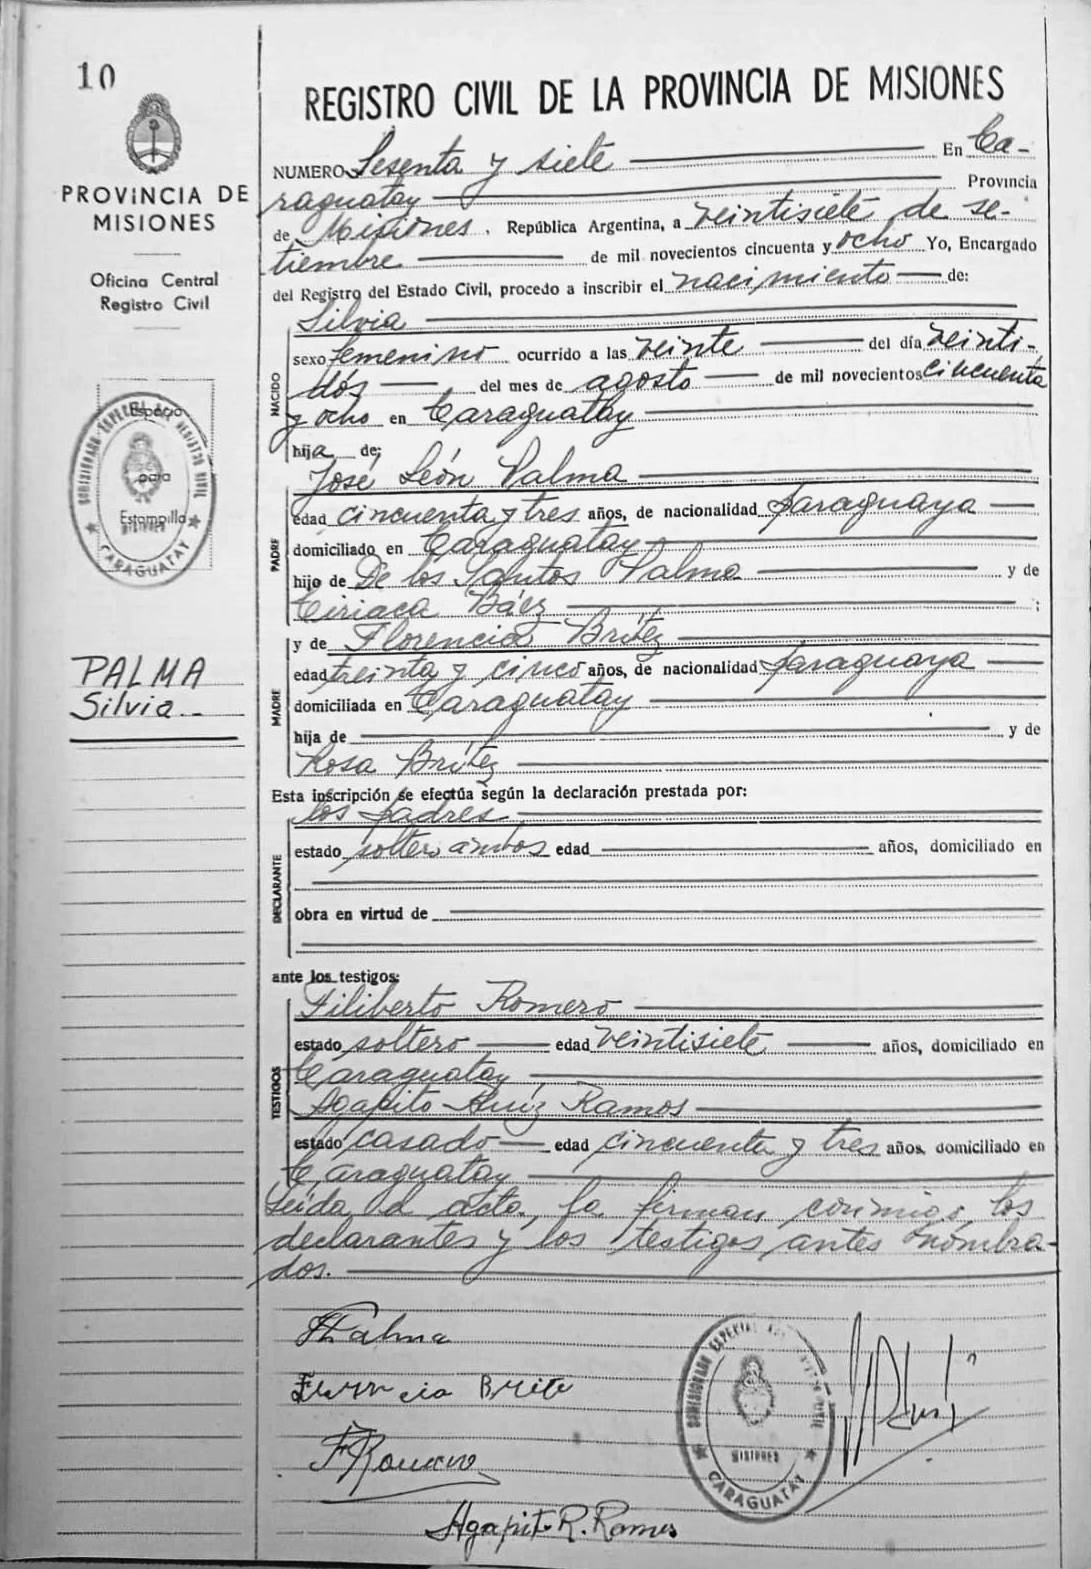 10
PROVINCIA DE
MISIONES
Oficina Central
Registro Civil
Espacio
para
Estampilla
COMISIONADO ESPECIAL REGISTRO CIVIL
MISIONES
CARAGUATAY
PALMA
Silvia
REGISTRO CIVIL DE LA PROVINCIA DE MISIONES
NUMERO Sesenta y siete En Ca-
raguatay Provincia
de Misiones, República Argentina, a veintisiete de se-
tiembre de mil novecientos cincuenta y ocho Yo, Encargado
del Registro del Estado Civil, procedo a inscribir el nacimiento de:
Silvia
NACIDO
sexo femenino ocurrido a las veinte del día veinti-
dós del mes de agosto de mil novecientos cincuenta
y ocho en Caraguatay
hija de;
José León Palma
PADRE
edad cincuenta y tres años, de nacionalidad paraguaya
domiciliado en Caraguatay
hijo de De los Santos Palma y de
Ciriaca Báez ;
MADRE
y de Florencia Brítez
edad treinta y cinco años, de nacionalidad paraguaya
domiciliada en Caraguatay
hija de y de
Rosa Brítez
Esta inscripción se efectúa según la declaración prestada por:
los padres
DECLARANTE
estado soltero ambos edad años, domiciliado en
obra en virtud de
ante los testigos:
Filiberto Romero
TESTIGOS
estado soltero edad veintisiete años, domiciliado en
Caraguatay
Agapito Ruíz Ramos
estado casado edad cincuenta y tres años, domiciliado en
Caraguatay
Leída el acta, la firman conmigo los
declarantes y los testigos antes nombra-
dos.
Palma
Florencia Brite
F Romero
COMISIONADO ESPECIAL REGISTRO CIVIL
MISIONES
CARAGUATAY
Agapito R. Ramos